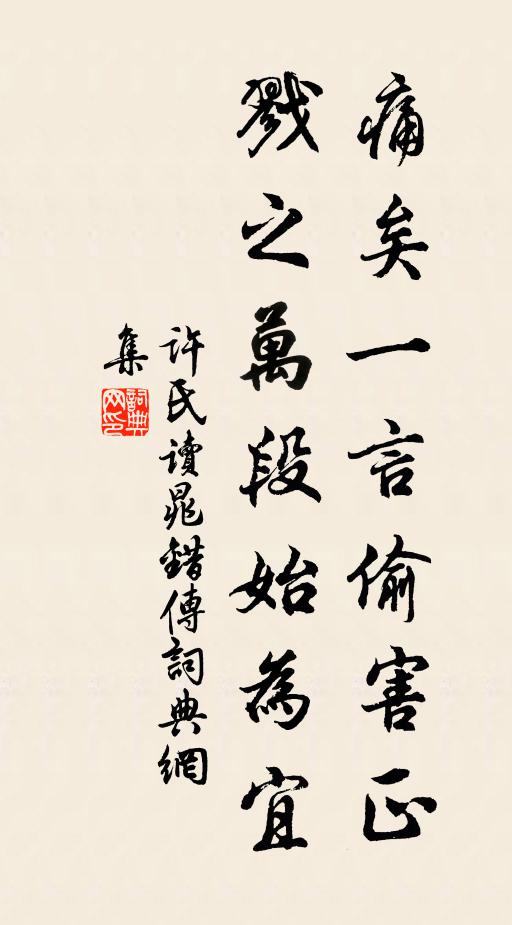 痛矣一言偷害正
戮之萬段始為宜
許氏讀晁錯傳詞典網
集
詞典網印